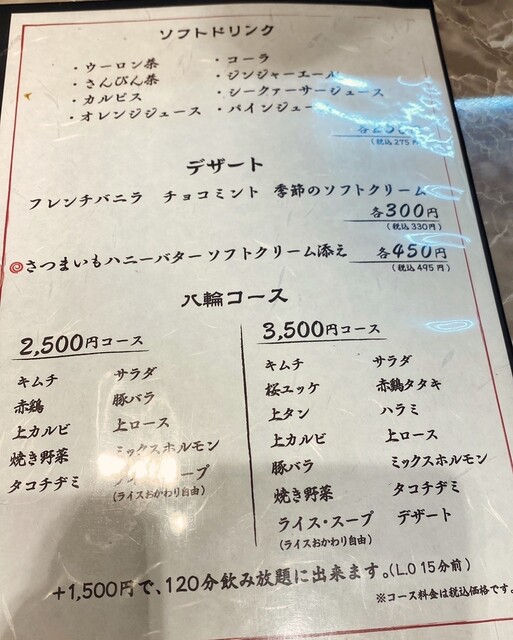 ソフトドリンク
・ウーロン茶 ・コーラ
・さんぴん茶 ・ジンジャーエール
・カルピス ・シークァーサージュース
・オレンジジュース ・パインジュー
(税込275円)
デザート
フレンチバニラ チョコミント 季節のソフトクリーム
各300円
(税込330円)
さつまいもハニーバターソフトクリーム添え 各450円
(税込495円)
八輪コース
2,500円コース
キムチ サラダ
赤鶏 豚バラ
上カルビ 上ロース
焼き野菜 ミックスホルモン
タコチヂミ スープ
(ライスおかわり自由)
3,500円コース
キムチ サラダ
桜ユッケ 赤鶏タタキ
上タン ハラミ
上カルビ 上ロース
豚バラ ミックスホルモン
焼き野菜 タコチヂミ
ライス・スープ デザート
(ライスおかわり自由)
+1,500円で、120分飲み放題に出来ます。(L.O 15分前)
※コース料金は税込価格です。